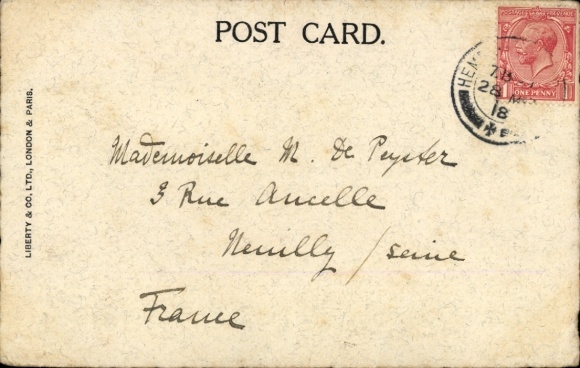 POST CARD.
POSTAGE REVENUE
ONE PENNY
1 1
HEM
28 MR
18
LIBERTY & CO. LTD., LONDON & PARIS.
Mademoiselle M. De Peyster
3 Rue Ancelle
Neuilly / seine
France